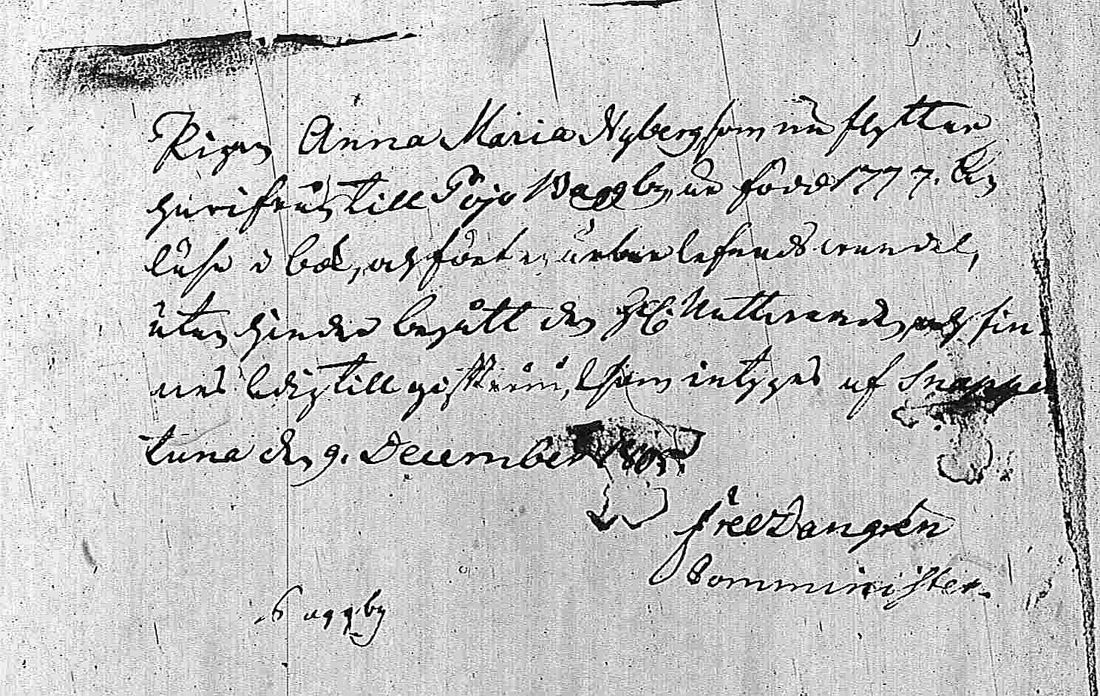 Pigan Anna Maria Nyberg, som nu flyttar
härifrån till Pojo Baggby, är född 1777. Kan
läsa i bok, och fört en ärbar lefnadswandel,
utan hinder begått den Hel. Nattwarden, och fin-
nes ledig till giftermål, som intygas af Snappe
tuna den 9. December
Comminister.
Baggby